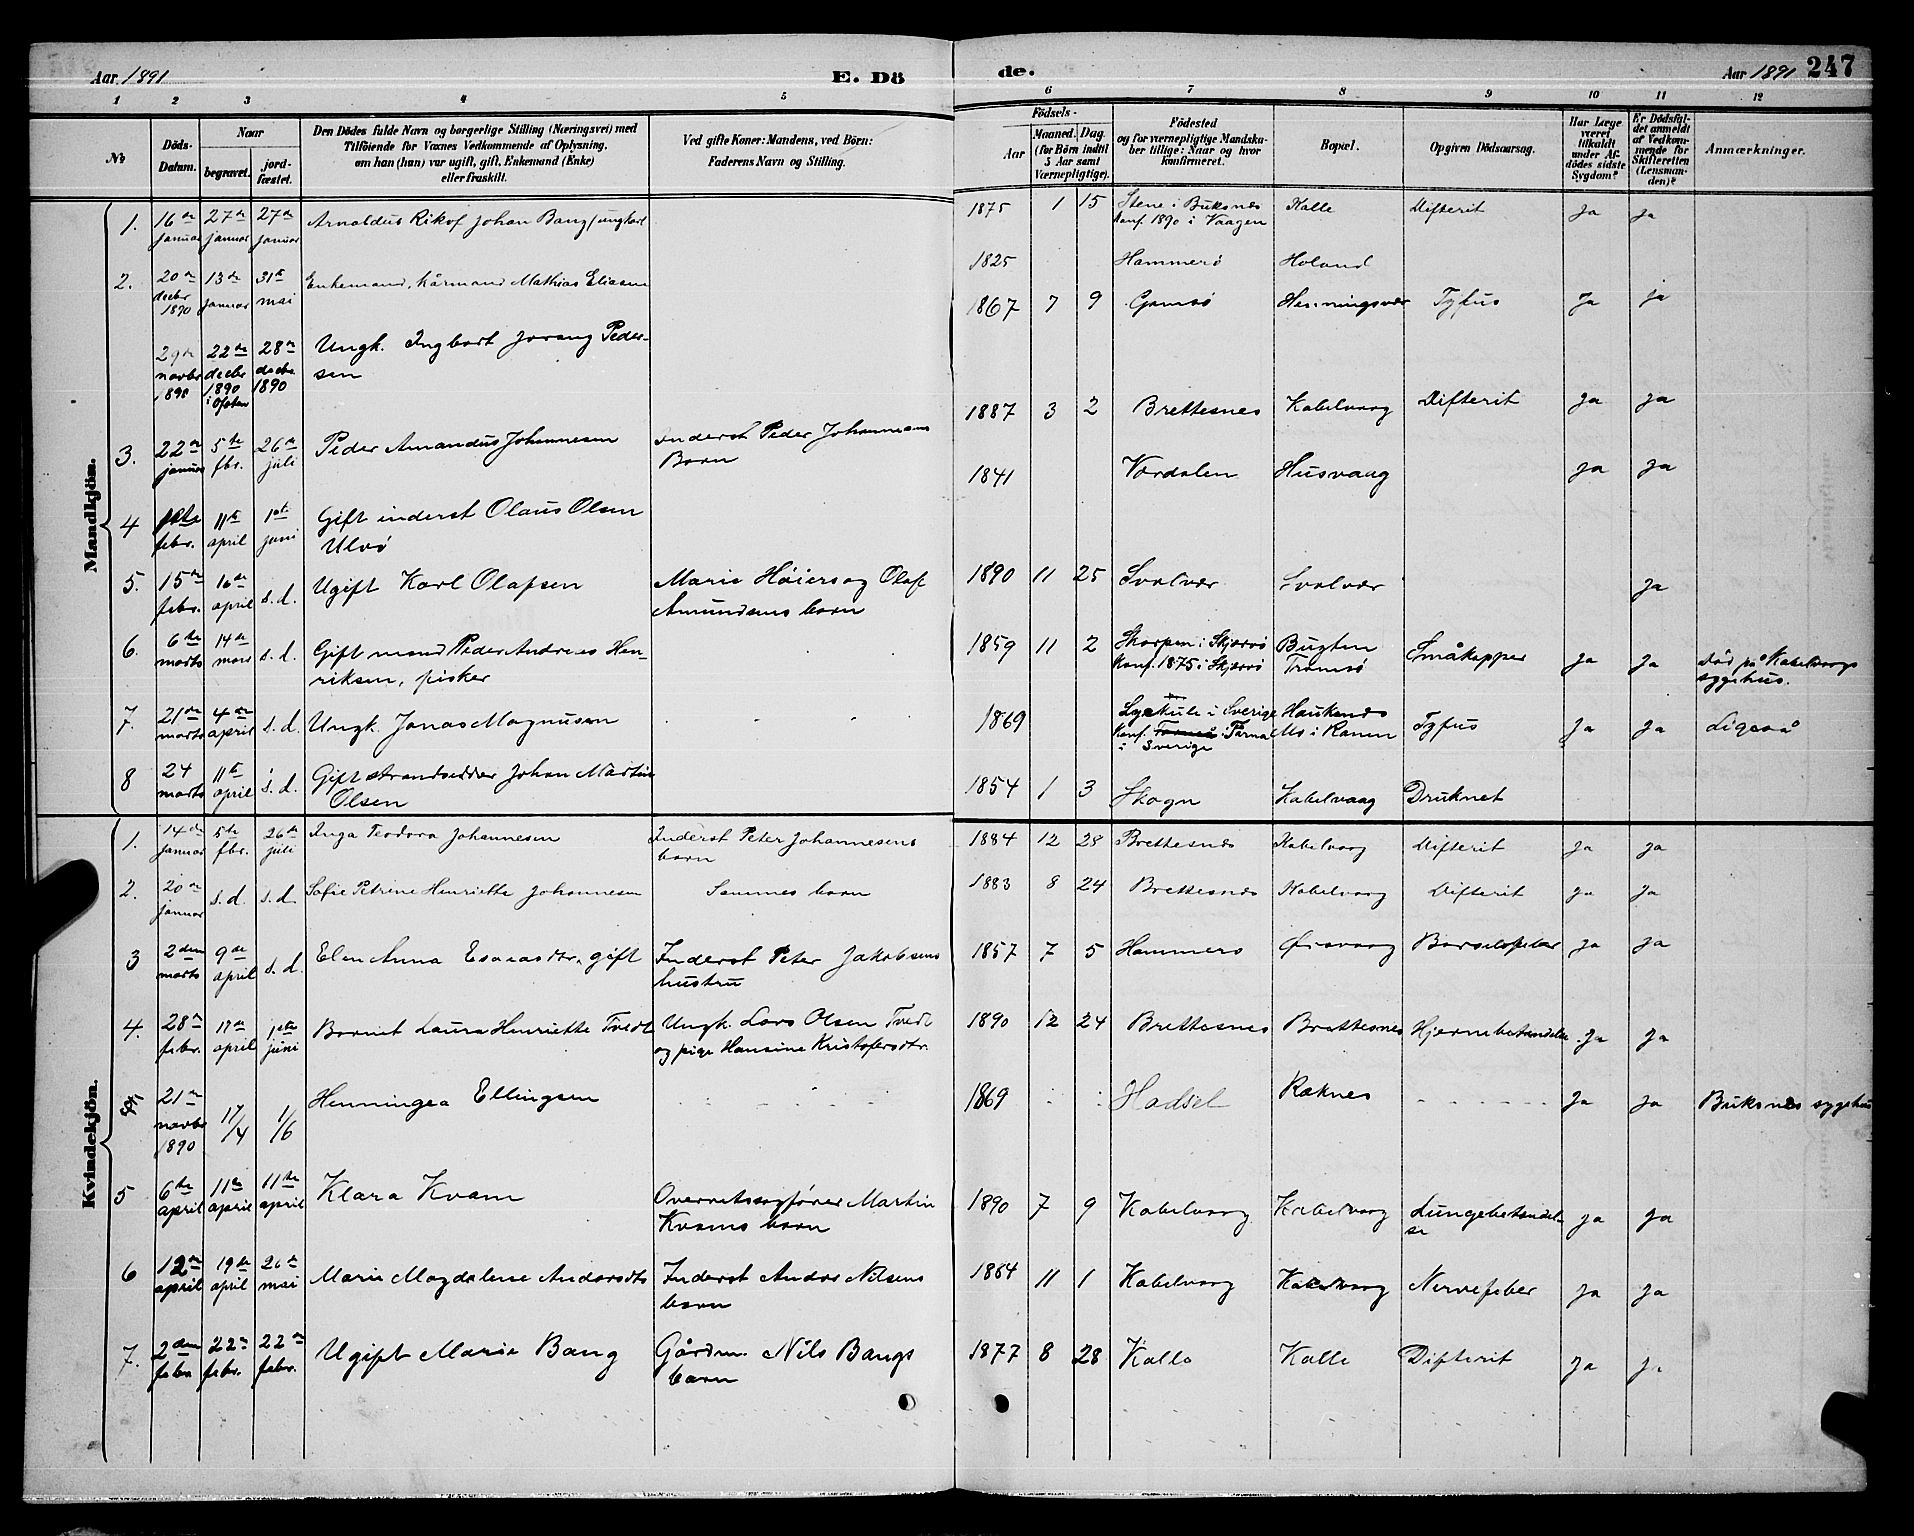 Aar 1891 E. Dö
de. Aar 1891 247
1 2 3 4 5
6 7 8 9 10 11 12
No
Döds-
Datum.
Naar
begravet.
jord-
fæstet.
Den Dödes fulde Navn og borgerlige Stilling (Næringsvei) med
Tilföiende for Voxnes Vedkommende af Oplysning,
om han (hun) var ugift, gift, Enkemand (Enke)
eller fraskilt.
Ved gifte Koner: Mandens, ved Börn:
Faderens Navn og Stilling.
Födsels-
Aar
Maaned. Dag.
(for Börn indtil
5 Aar samt
Værnepligtige).
Födested
og for værnepligtige Mandska-
ber tillige: Naar og hvor
konfirmeret.
Bopæl.
Opgiven Dödsaarsag.
Har Læge
været
tilkaldt
under Af-
dödes sidste
Sygdom?
Er Dödsfal-
det anmeldt
af Vedkom-
mende for
Skifteretten
(Lensman-
den)?
Anmærkninger.
Mandkjön.
1. 16de januar 27de januar 27de januar Arnoldus Rikof Johan Bang, ungkarl
1875 1 15 Stene i Buksnes Kalle Difterit Ja ja
Konf. 1890 i Vaagen
2. 20de decbr 1890 13de januar 31te mai Enkemand, kårmand Mathias Eliasen
1825 Hammerö Holand
29de novbr 1890 22de decbr 1890 i Ofoten 28de decbr 1890 Ungk. Ingbart Jorang Peder-
sen
1867 7 9 Gimsö Henningsvær Tyfus Ja ja
3. 22de januar 5te fbr. 26de juli Peder Amandus Johannesen Inderst Peder Johannesens
Barn
1887 3 2 Brettesnes Kabelvaag Difterit Ja Ja
4 febr. 11te april 1ste juni Gift inderst Olaus Olsen
Ulvö
1841 Værdalen Husvaag Ja Ja
5. 15de febr. 16de april s. d. Ugift Karl Olafsen Marie Höiers og Olaf
Amundsens barn
1890 11 25 Svolvær Svolvær Ja
6. 6te marts 14de mars s. d. Gift mand Peder Andreas Hen-
riksen, fisker
1859 11 2 Skorpen i Skjærvö Bugten Småkopper Ja Ja Död på Kabelvaags
Konf. 1875 i Skjærvö Tromsö sygehus.
7. 21de marts 4de april s. d. Ungk. Jonas Magnusen
1869 i Sverige Tyfus Ja Ja Ligeså
Konf. Tärna Mo i Ranen
i Sverige
8 24 marts 11te april s. d. Gift strandsidder Johan Martin
Olsen
1854 1 3 Skogn Kabelvaag Druknet
Kvindekjön.
1. 14de januar 5te fbr. 26de juli Inga Teodora Johannesen Inderst Peter Johannesens
barn
1884 12 28 Brettesnes Kabelvaag Difterit Ja Ja
2. 20de januar s. d. s. d. Sofie Petrine Henriette Johannesen Sammes barn
1883 8 24 Brettesnes Kabelvaag Difterit Ja Ja
3 2den marts 9de april s. d. Elen Anna Esaiasdtr. gift Inderst Peter Jakobsens
hustru
1857 7 5 Hammerö Örsvaag Barselsfeber Ja Ja
4. 28de febr. 17de april 1ste juni Barnet Laura Henriette Tvedt Ungk. Lars Olsen Tvedt
og pige Hansine Kristofersdtr.
1890 12 24 Brettesnes Brettesnes Hjernebetændelse Ja Ja
21de novbr 1890 17/4 1/6 Henningea Ellingsen
1869 Hadsel Raknes Ja Ja Buksnes sygehus
5 6te april 11te april 11te april Klara Kvam Overretssagförer Martin
Kvams barn
1890 7 9 Kabelvaag Kabelvaag Lungebetændel-
se Ja Ja
6 12de april 19de april 26de mai Marie Magdalene Andersdtr Inderst Andor Nilsens
barn
1864 11 1 Kabelvaag Kabelvaag Nervefeber Ja Ja
7. 2den febr. 22de febr. 22de febr. Ugift Marie Bang Gårdm. Nils Bangs
barn
1877 8 28 Kalle Kalle Difterit Ja Ja